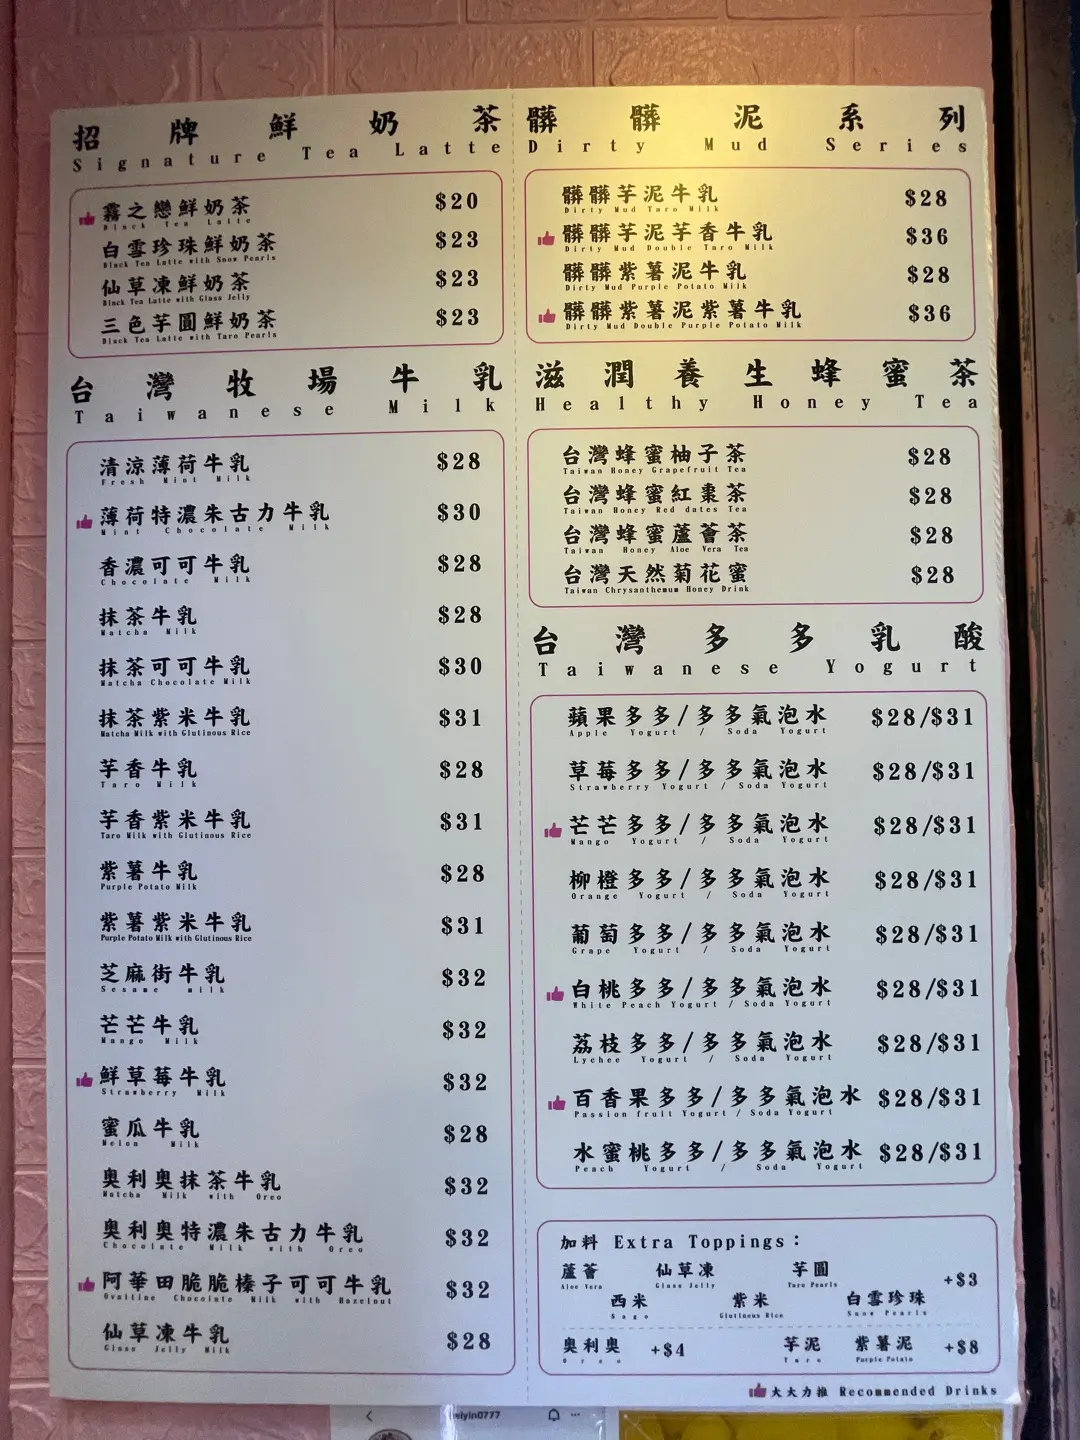 招牌鮮奶茶
Signature Tea Latte
霧之戀鮮奶茶 $20
Black Tea Latte
白雪珍珠鮮奶茶 $23
Black Tea Latte with Snow Pearls
仙草凍鮮奶茶 $23
Black Tea Latte with Glass Jelly
三色芋圓鮮奶茶 $23
Black Tea Latte with Taro Pearls
台灣牧場牛乳
Taiwanese Milk
清涼薄荷牛乳 $28
Fresh Mint Milk
薄荷特濃朱古力牛乳 $30
Mint Chocolate Milk
香濃可可牛乳 $28
Chocolate Milk
抹茶牛乳 $28
Matcha Milk
抹茶可可牛乳 $30
Matcha Chocolate Milk
抹茶紫米牛乳 $31
Matcha Milk with Glutinous Rice
芋香牛乳 $28
Taro Milk
芋香紫米牛乳 $31
Taro Milk with Glutinous Rice
紫薯牛乳 $28
Purple Potato Milk
紫薯紫米牛乳 $31
Purple Potato Milk with Glutinous Rice
芝麻街牛乳 $32
Sesame milk
芒芒牛乳 $32
Mango Milk
鮮草莓牛乳 $32
Strawberry Milk
蜜瓜牛乳 $28
Melon Milk
奧利奧抹茶牛乳 $32
Matcha Milk with Oreo
奧利奧特濃朱古力牛乳 $32
Chocolate Milk with Oreo
阿華田脆脆榛子可可牛乳 $32
Ovaltine Chocolate Milk with Hazelnut
仙草凍牛乳 $28
Glass Jelly Milk
髒髒泥系列
Dirty Mud Series
髒髒芋泥牛乳 $28
Dirty Mud Taro Milk
髒髒芋泥芋香牛乳 $36
Dirty Mud Double Taro Milk
髒髒紫薯泥牛乳 $28
Dirty Mud Purple Potato Milk
髒髒紫薯泥紫薯牛乳 $36
Dirty Mud Double Purple Potato Milk
滋潤養生蜂蜜茶
Healthy Honey Tea
台灣蜂蜜柚子茶 $28
Taiwan Honey Grapefruit Tea
台灣蜂蜜紅棗茶 $28
Taiwan Honey Red dates Tea
台灣蜂蜜蘆薈茶 $28
Taiwan Honey Aloe Vera Tea
台灣天然菊花蜜 $28
Taiwan Chrysanthemum Honey Drink
台灣多多乳酸
Taiwanese Yogurt
蘋果多多/多多氣泡水 $28/$31
Apple Yogurt / Soda Yogurt
草莓多多/多多氣泡水 $28/$31
Strawberry Yogurt / Soda Yogurt
芒芒多多/多多氣泡水 $28/$31
Mango Yogurt / Soda Yogurt
柳橙多多/多多氣泡水 $28/$31
Orange Yogurt / Soda Yogurt
葡萄多多/多多氣泡水 $28/$31
Grape Yogurt / Soda Yogurt
白桃多多/多多氣泡水 $28/$31
White Peach Yogurt / Soda Yogurt
荔枝多多/多多氣泡水 $28/$31
Lychee Yogurt / Soda Yogurt
百香果多多/多多氣泡水 $28/$31
Passion fruit Yogurt / Soda Yogurt
水蜜桃多多/多多氣泡水 $28/$31
Peach Yogurt / Soda Yogurt
加料 Extra Toppings：
蘆薈 仙草凍 芋圓 +$3
Aloe Vera Glass Jelly Taro Pearls
西米 紫米 白雪珍珠
Sago Glutinous Rice Snow Pearls
奧利奧 +$4 芋泥 紫薯泥 +$8
Oreo Taro Purple Potato
大大力推 Recommended Drinks